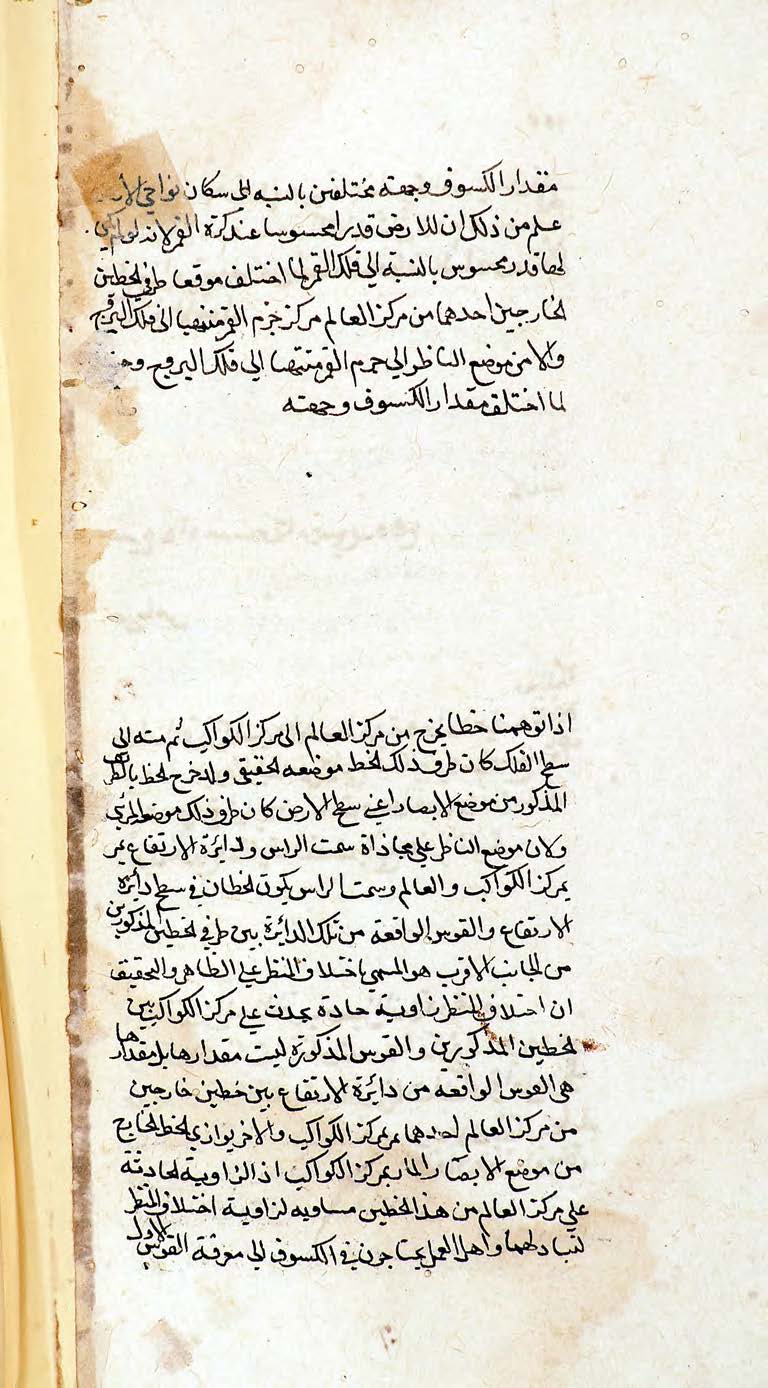 مقدار الكسوف وجهته مختلفين بالنسبه الى سكان نواحي الار
علم من ذلك ان للارض قدرا محسوسا عند كرة القمر لانه لو لم يكن
لها قدر محسوس بالنسبة الي فلك القمر لما اختلف موقعا طرفي الخطين
الخارجين احدهما من مركز العالم مركز جرم القمر منتهيا الى فلك البروج
والا من موضع الناظر الي جرم القمر منتهيا الي فلك البروج وح
لما اختلف مقدار الكسوف وجهته
اذا توهمنا خطا يخرج من مركز العالم الى مركز الكواكب ثم منه الى
سطح الفلك كان طرف ذلك الخط موضعه الحقيقي ولو خرج الخط بالطرف
المذكور من موضع الابصار اعني سطح الارض كان طرف ذلك موضعه المرئي
ولان موضع الناظر علي محاذاة سمت الراس ودايرة الارتفاع يمر
يمركز الكواكب والعالم وسمت الراس يكون الخطان في سطح دائرة
الارتفاع والقوس الواقعة من تلك الدائرة بين طرفي الخطين المذكورين
من الجانب الاقرب هو المسمي باختلاف المنظر علي الظاهر والتحقيق
ان اختلاف المنظر زاوية حادة يحدث علي مركز الكواكب بين
الخطين المذكورين والقوس المذكورة ليست مقدارها بل مقدارها
هى القوس الواقعه من دايرة الارتفاع بين خطين خارجين
من مركز العالم احدهما يمر بمركز الكواكب والاخر يوازي الخط الخارج
من موضع الابصار المار بمركز الكواكب اذ الزاوية الحادثة
علي مركز العالم من هذا الخطين مساويه لزاوية اختلاف المنظر
لتبادلهما واهل العمل يحتاجون في الكسوف الى معرفة القوس الاول